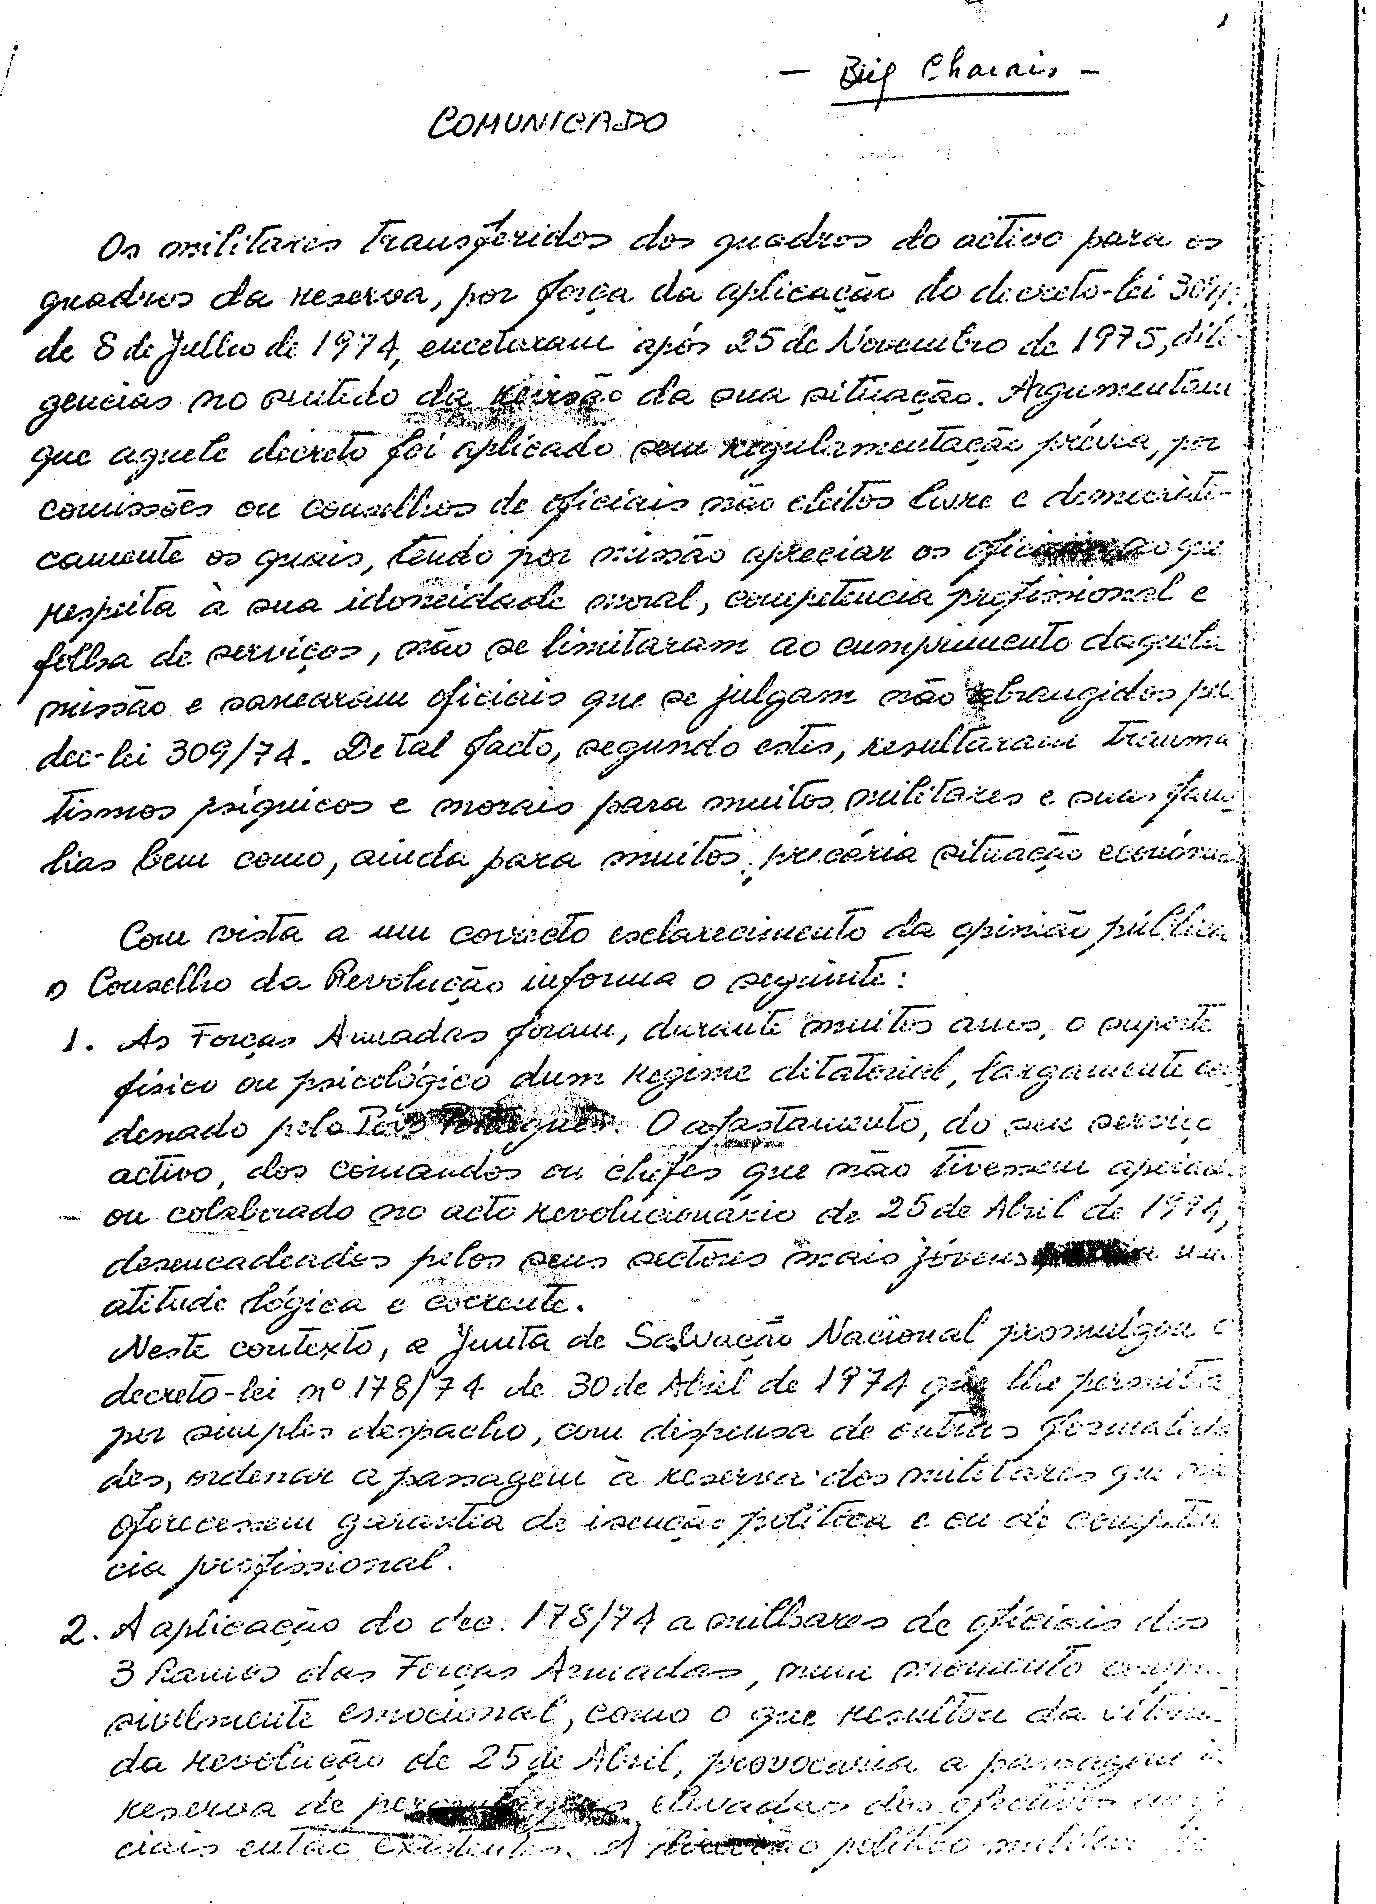 - Brig Charais -
COMUNICADO
Os militares transferidos dos quadros do activo para os
quadros da reserva, por força da aplicação do decreto-lei 309/
de 8 de Julho de 1974, encetaram após 25 de Novembro de 1975, dili-
gencias no sentido da revisão da sua situação. Argumentam
que aquele decreto foi aplicado sem regulamentação prévia, por
comissões ou conselhos de oficiais não eleitos livre e democráti-
camente os quais, tendo por missão apreciar os oficiais no que
respeita à sua idoneidade moral, competencia profissional e
folha de serviços, não se limitaram ao cumprimento daquela
missão e sanearam oficiais que se julgam não abrangidos pelo
dec-lei 309/74. De tal facto, segundo estes, resultaram trauma
tismos psíquicos e morais para muitos militares e suas famí
lias bem como, ainda para muitos, precária situação económica
Com vista a um correcto esclarecimento da opinião pública
o Conselho da Revolução informa o seguinte:
1. As Forças Armadas foram, durante muitos anos, o suporte
físico ou psicológico dum regime ditatorial, largamente con
denado pelo Povo Português. O afastamento, do seu serviço
activo, dos comandos ou chefes que não tivessem apoiado
ou colaborado no acto revolucionário de 25 de Abril de 1974,
desencadeados pelos seus sectores mais jóvens uma
atitude lógica e coerente.
Neste contexto, a Junta de Salvação Nacional promulgou o
decreto-lei nº 178/74 de 30 de Abril de 1974 que lhe permitia
por simples despacho, com dispensa de outras formalida
des, ordenar a passagem à reserva dos militares que não
oferecessem garantia de isenção política e ou de competên
cia profissional.
2. A aplicação do dec. 178/74 a milhares de oficiais dos
3 Ramos das Forças Armadas, num momento compreen
sivelmente emocional, como o que resultou da vitória
da revolução de 25 de Abril, provocaria a passagem à
reserva de percentagens elevadas dos efectivos
ciais então existentes. A direcção político-militar